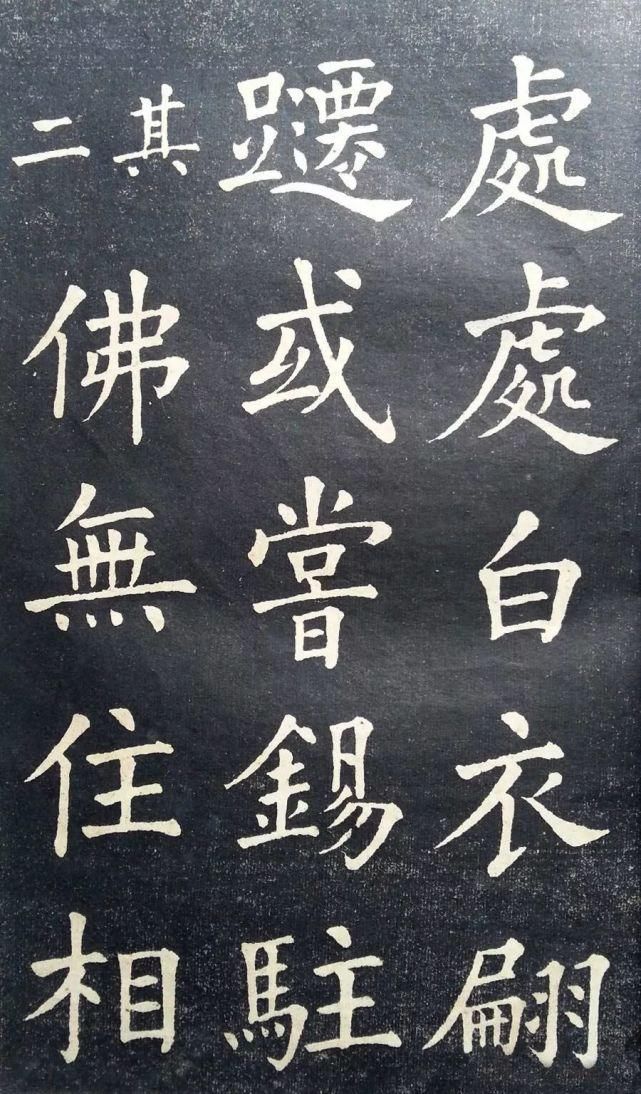 處處白衣翩
躚或嘗錫駐
其二
佛無住相